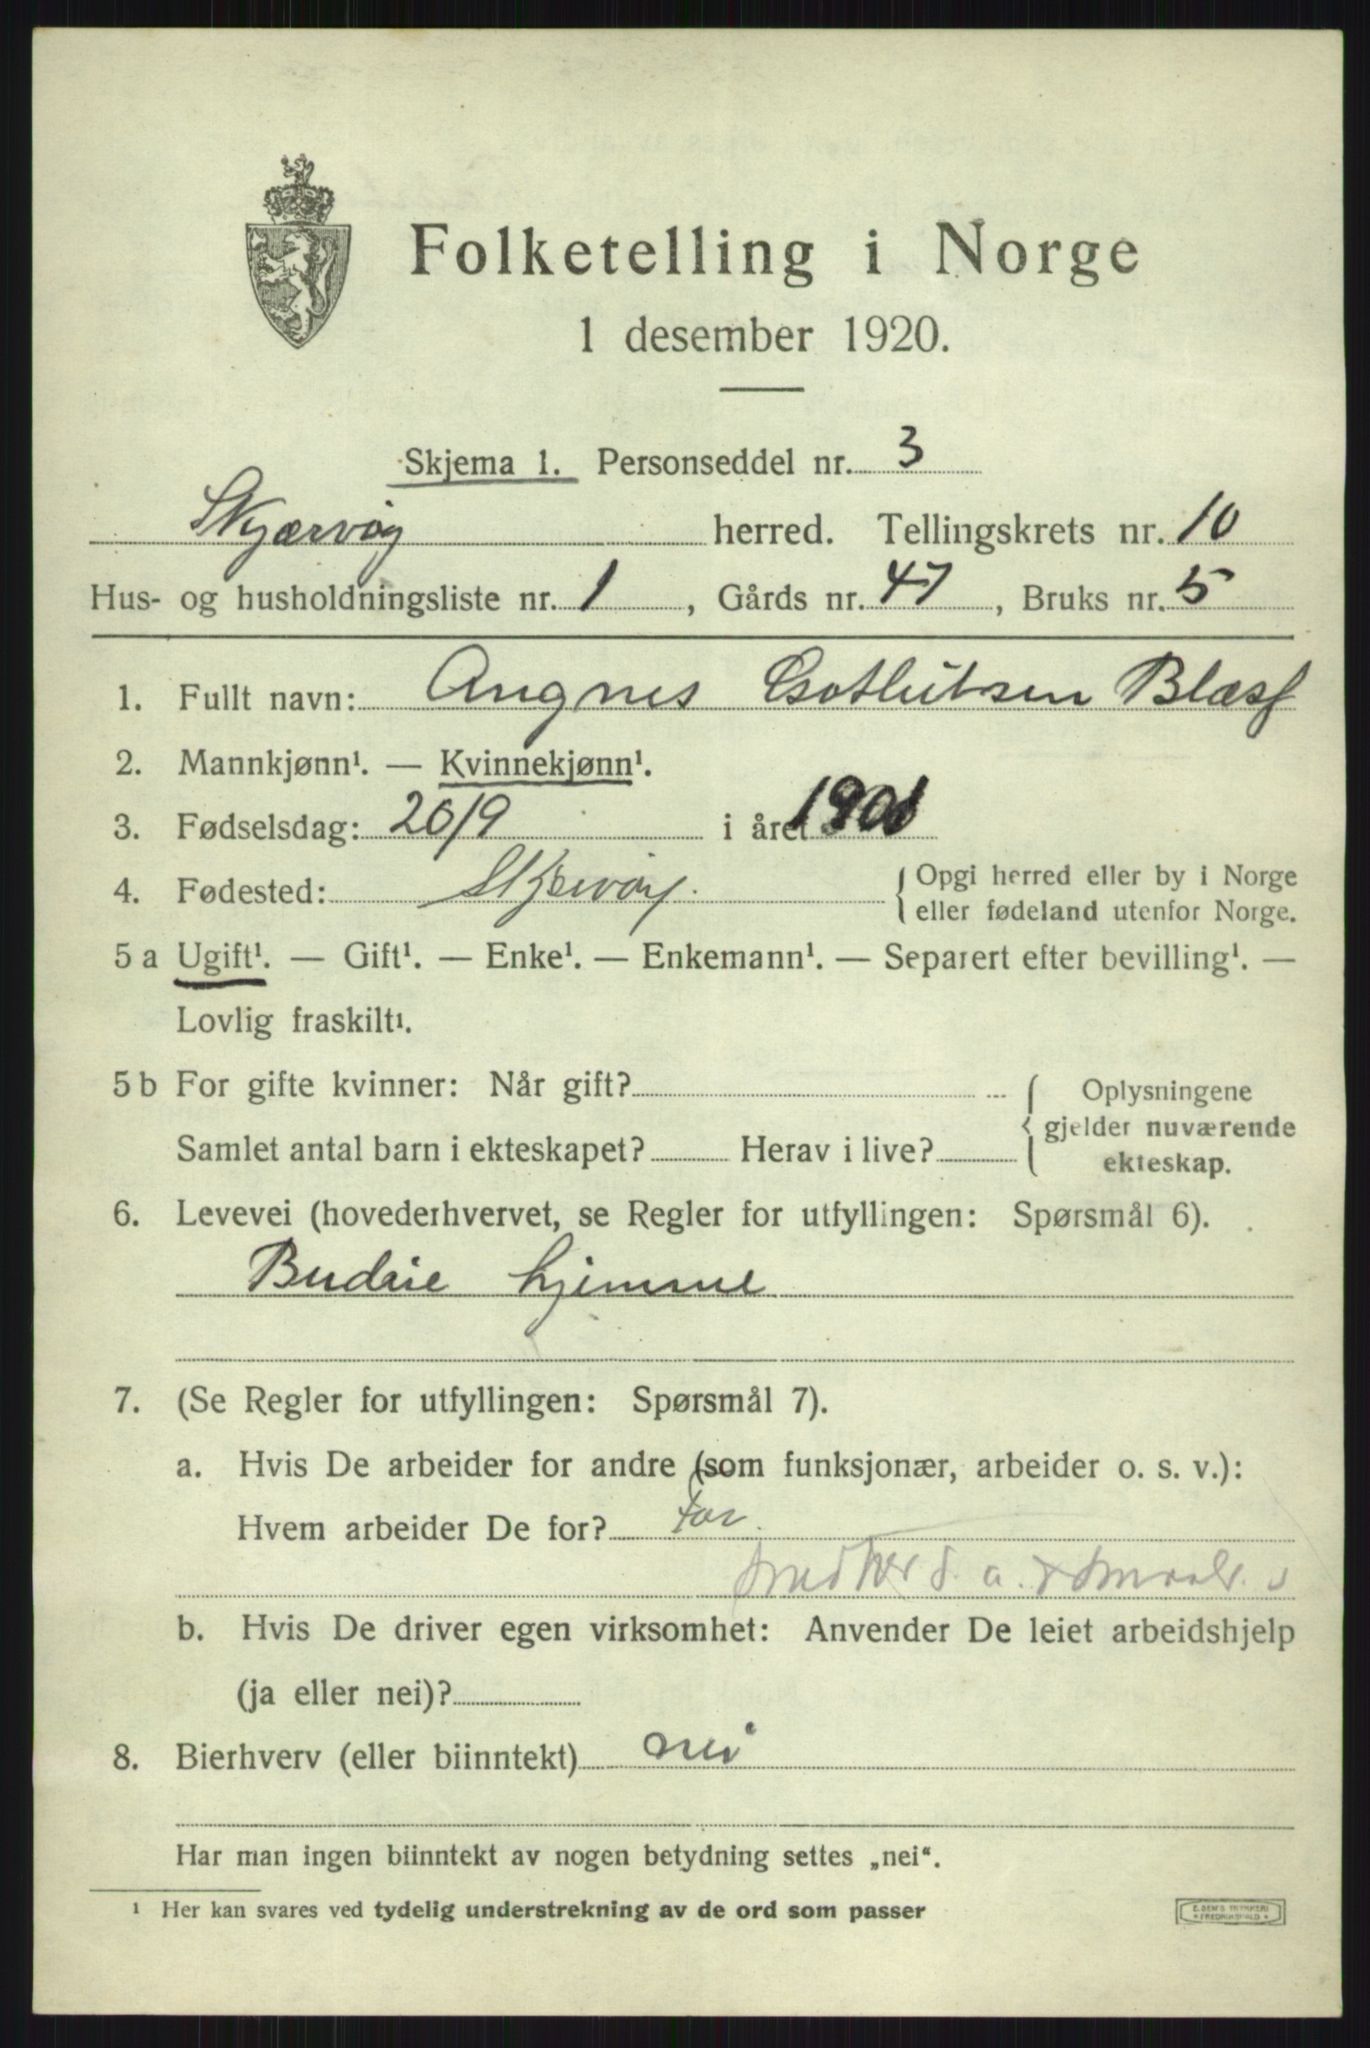 Folketelling i Norge
1 desember 1920.
Skjema 1. Personseddel nr. 3
Skjærvøy herred. Tellingskrets nr. 10
Hus- og husholdningsliste nr. 1, Gårds nr. 47, Bruks nr. 5
1. Fullt navn: Angnes Gotlitsen Blæsf
2. Mannkjønn¹. — Kvinnekjønn¹.
3. Fødselsdag: 20/9 i året 1901
4. Fødested: Skjervøy. { Opgi herred eller by i Norge
eller fødeland utenfor Norge.
5 a Ugift¹. — Gift¹. — Enke¹. — Enkemann¹. — Separert efter bevilling¹. —
Lovlig fraskilt¹.
5 b For gifte kvinner: Når gift? { Oplysningene
gjelder nuværende
ekteskap.
Samlet antal barn i ekteskapet? Herav i live?
6. Levevei (hovederhvervet, se Regler for utfyllingen: Spørsmål 6).
Budeie hjemme
7. (Se Regler for utfyllingen: Spørsmål 7).
a. Hvis De arbeider for andre (som funksjonær, arbeider o. s. v.):
Hvem arbeider De for? Far
b. Hvis De driver egen virksomhet: Anvender De leiet arbeidshjelp
(ja eller nei)?
8. Bierhverv (eller biinntekt) nei
Har man ingen biinntekt av nogen betydning settes „nei“.
¹ Her kan svares ved tydelig understrekning av de ord som passer